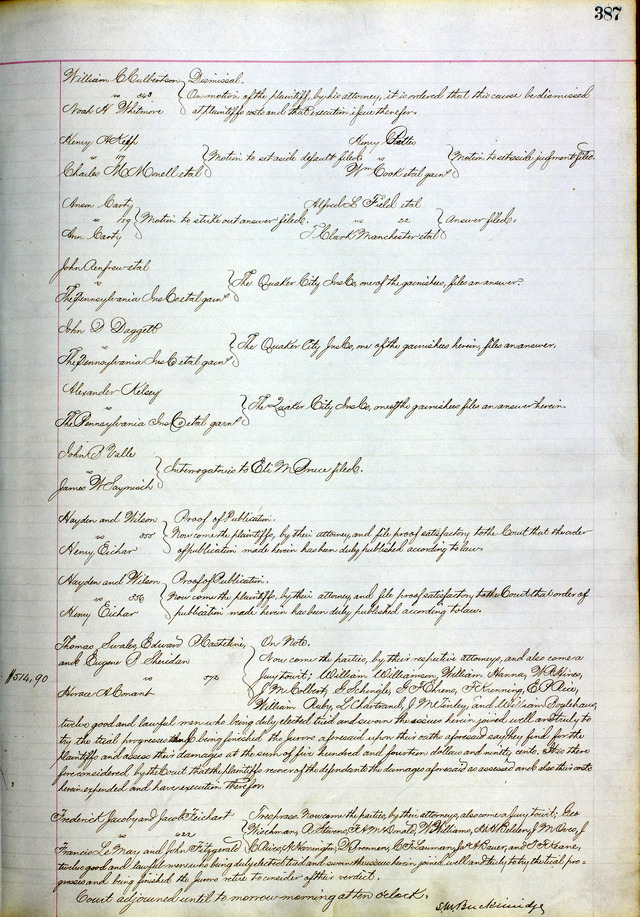 387
William C Culbertson } Dismissal.
vs 343 On motion of the plaintiff, by his attorney, it is ordered that this cause be dismissed
Noah H Whitmore at plaintiffs costs and that execution issue therefor.
Henry A Kepp Henry
vs 17 } Motion to set aside default filed. vs } Motion to set aside judgment filed.
Charles M. McDonell etal Wm Cook etal garn
Anson Carty Alfred L Field etal
vs 189 } Motion to strike out answer filed. vs 22 } Answer filed.
Ann Carty T Clark Manchester etal
John Renfrew etal
vs } The Quaker City Ins Co, one of the garnishees, files an answer.
The Pennsylvania Ins Co etal garn
John D Daggett
vs } The Quaker City Ins Co, one of the garnishees herein, files an answer.
The Pennsylvania Ins Co etal garn
Alexander Kelsey
vs } The Quaker City Ins Co, one of the garnishees files an answer herein.
The Pennsylvania Ins Co etal garn
John P Valle
vs } Interrogatories to Eli M Bruce filed.
James W
Hayden and Wilson } Proof of Publication.
vs 355 Now come the plaintiffs, by their attorney, and file proof satisfactory to the Court that the order
Henry Eichar of publication made herein has been duly published according to law.
Hayden and Wilson } Proof of Publication.
vs 356 Now come the plaintiffs, by their attorney, and file proof satisfactory to the Court that order of
Henry Eichar publication made herein has been duly published according to law.
Thomas Swales, Edward Hasteline, } On Note.
and Eugene P Sheridan Now come the parties, by their respective attorneys, and also come a
$514,90 vs 572 Jury towit; William Williamson, William Hanna, W R Hines,
Horace A Conant J M Colbert, G Schengle, G F Ehrens, F Kenning, E P Rice,
William Raby, L Chartrand, J McKinley, and William
twelve good and lawful men who being duly elected tried and sworn the issues herein joined well and truly to
try the trial progresses and being finished the Jurors aforesaid upon their oaths aforesaid say they find for the
plaintiffs and assess their damages at the sum of five hundred and fourteen dollars and ninety cents. It is there
fore considered by the Court that the plaintiffs recover of the defendants the damages aforesaid as assessed and also their costs
herein expended and have execution therefor.
Frederick Jacoby and Jacob Feichart } Trespass. Now come the parties, by their attorneys, also come a Jury towit; Geo
vs 622 Wiechman, A Stevens, H M Donald, W Williams, A H Belden, J M Orce, J
Francis LeMay and John Fitzgerald C Rice, A Hennington, D Brennan, C F Lauman, J A Bauer, and T F Keane,
twelve good and lawful men who being duly elected tried and sworn the issues herein joined well and truly to try, the trial pro-
gresses and being finished the Jurors retire to consider of their verdict.
Court adjourned until tomorrow morning at ten o'clock.
S M Breckinridge